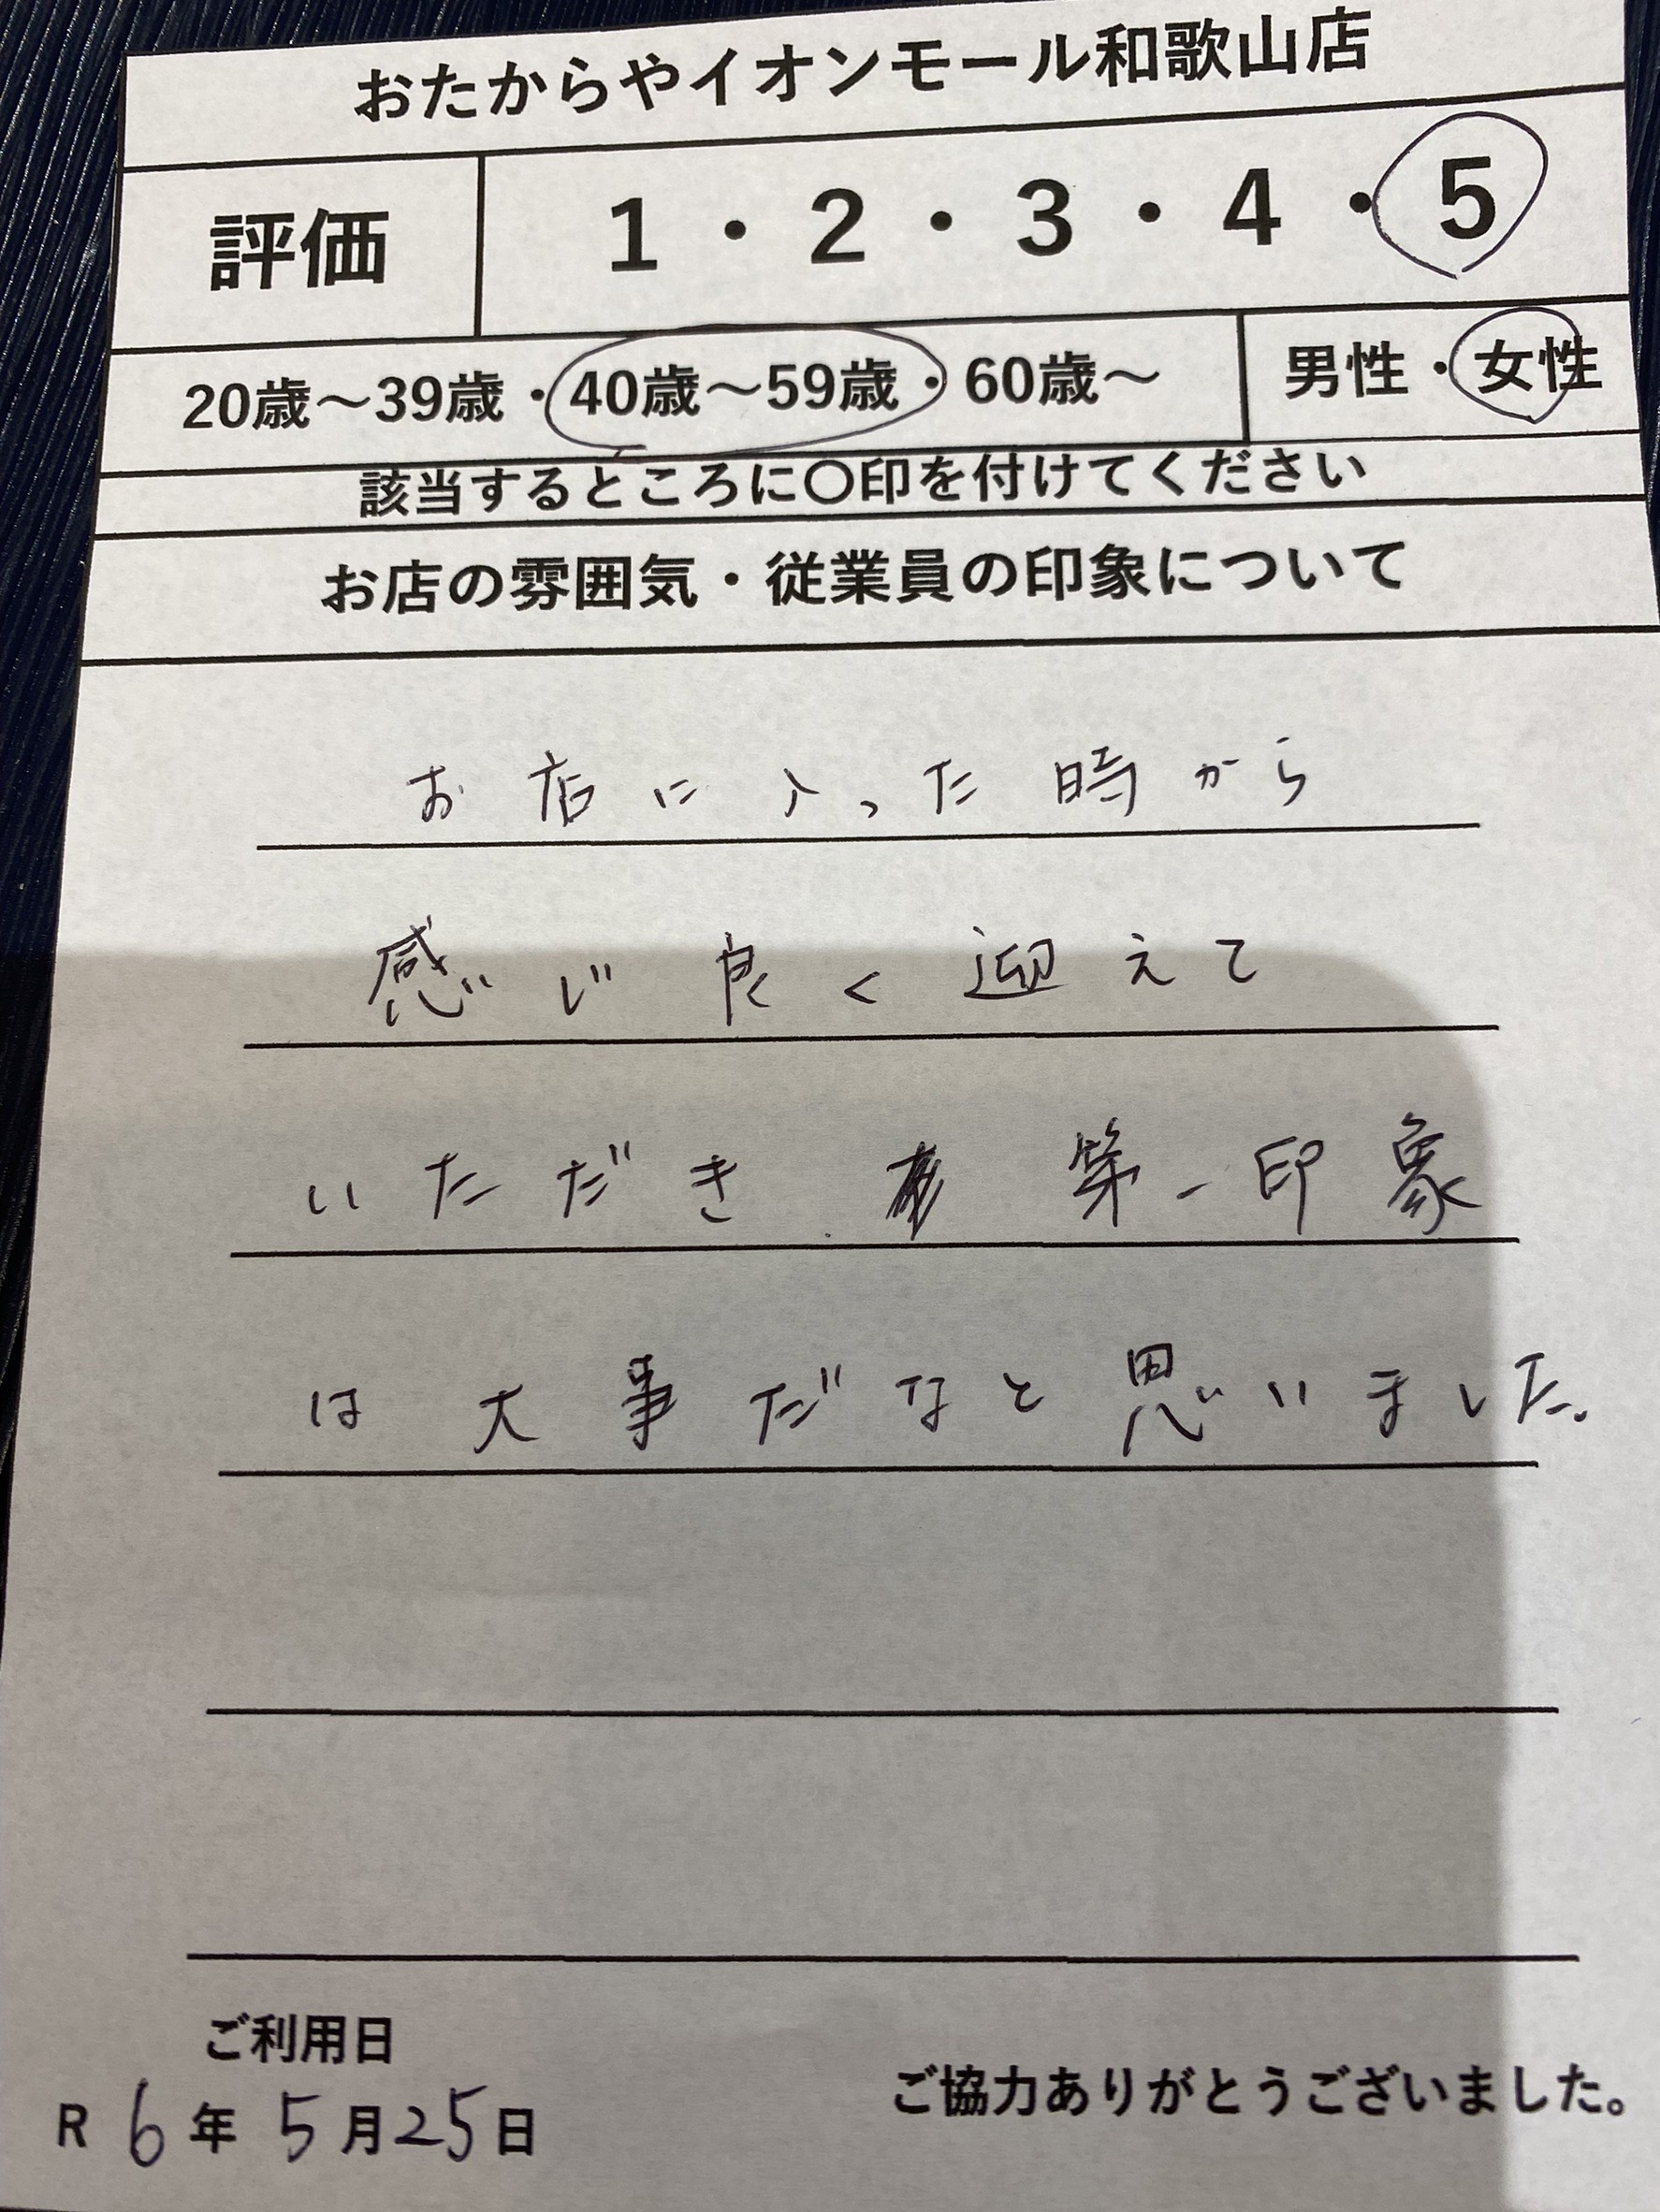 おたからやイオンモール和歌山店
評価 1・2・3・4・5
20歳～39歳・40歳～59歳・60歳～ 男性・女性
該当するところに〇印を付けてください
お店の雰囲気・従業員の印象について
お店に入った時から
感じ良く迎えて
いただき、第一印象
は大事だなと思いました。
ご利用日
R 6年 5月25日
ご協力ありがとうございました。